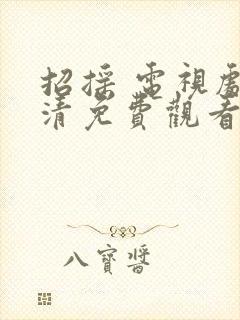 招採 電視處
清免費觀看
八寶醬